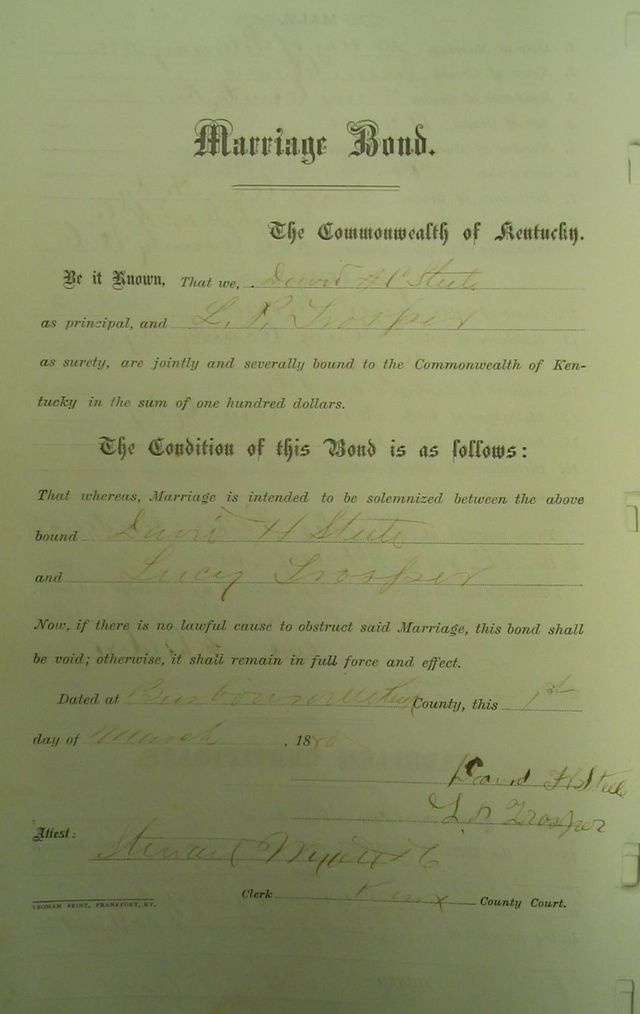 Marriage Bond.
The Commonwealth of Kentucky.
Be it Known, That we, David H Steele
as principal, and L. R. Trosper
as surety, are jointly and severally bound to the Commonwealth of Ken-
tucky in the sum of one hundred dollars.
The Condition of this Bond is as follows:
That whereas, Marriage is intended to be solemnized between the above
bound David H Steele
and Lucy Trosper
Now, if there is no lawful cause to obstruct said Marriage, this bond shall
be void; otherwise, it shall remain in full force and effect.
Dated at Barbourville Knox County, this 1st
day of March, 1880
David H Steele
L R Trosper
Attest:
Stewart
Clerk Knox County Court.
YEOMAN PRINT, FRANKFORT, KY.